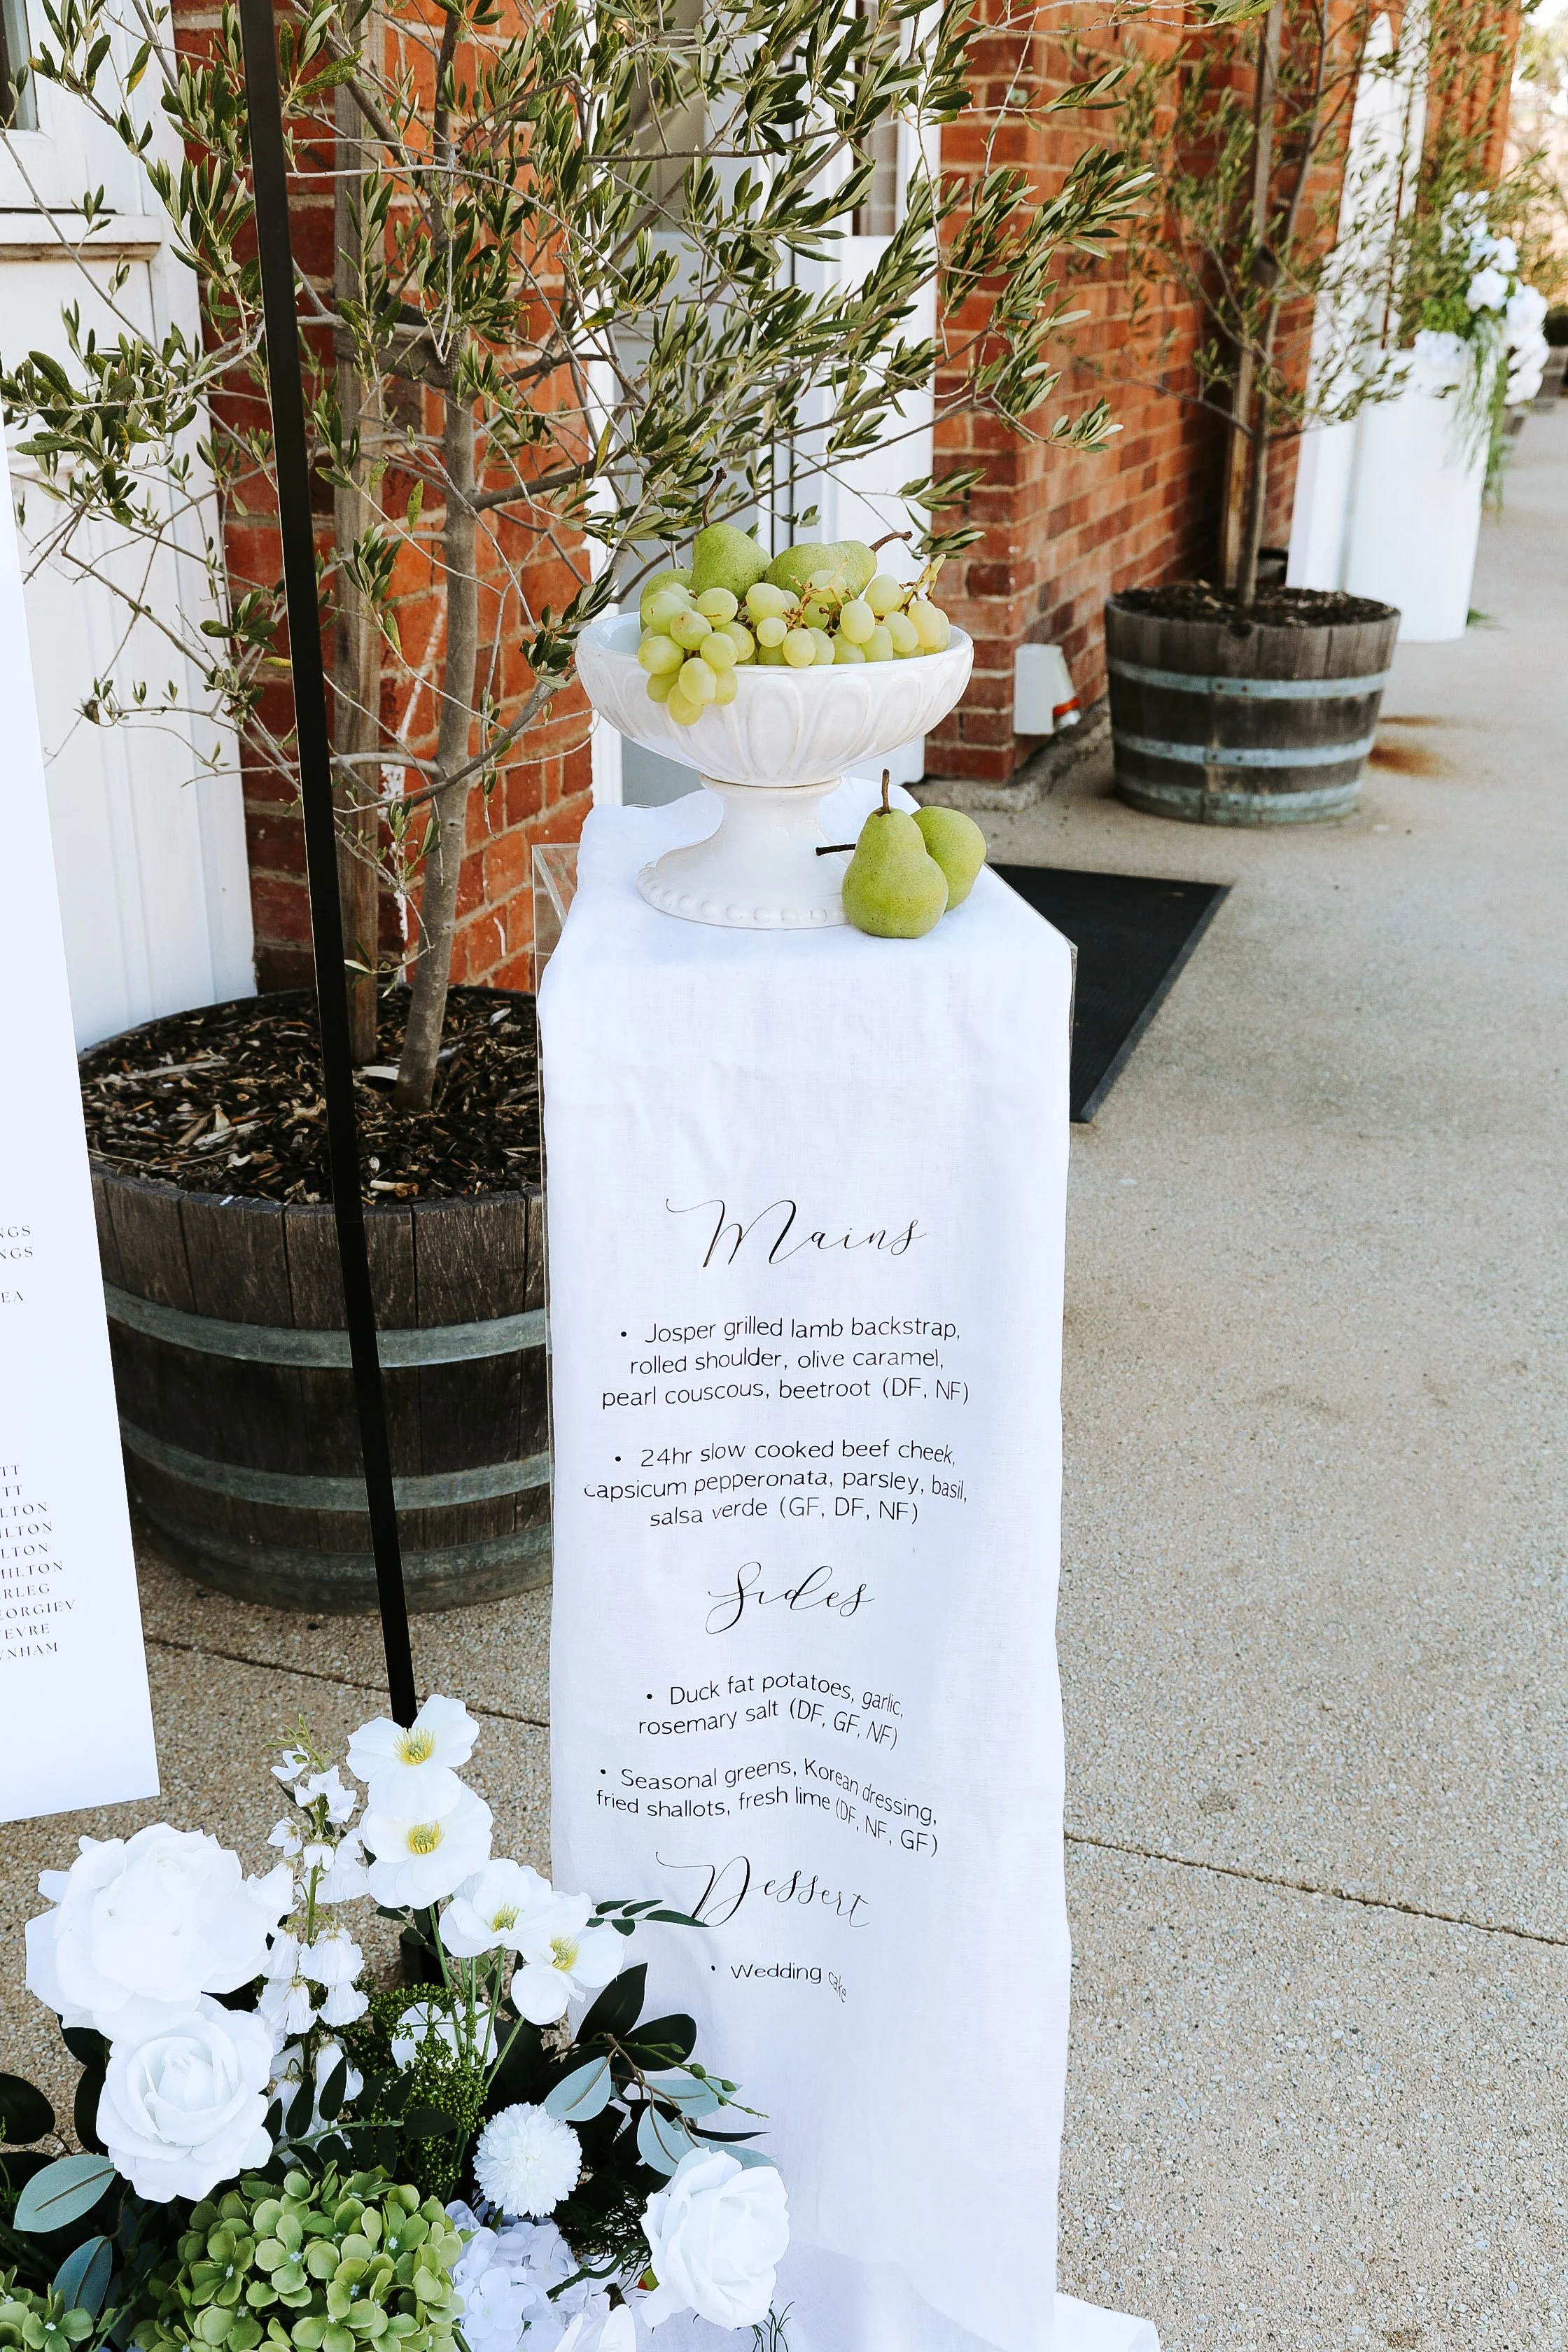 Mains
• Josper grilled lamb backstrap,
rolled shoulder, olive caramel,
pearl couscous, beetroot (DF, NF)
• 24hr slow cooked beef cheek,
capsicum pepperonata, parsley, basil,
salsa verde (GF, DF, NF)
Sides
• Duck fat potatoes, garlic,
rosemary salt (DF, GF, NF)
• Seasonal greens, Korean dressing,
fried shallots, fresh lime (DF, NF, GF)
Dessert
• Wedding cake